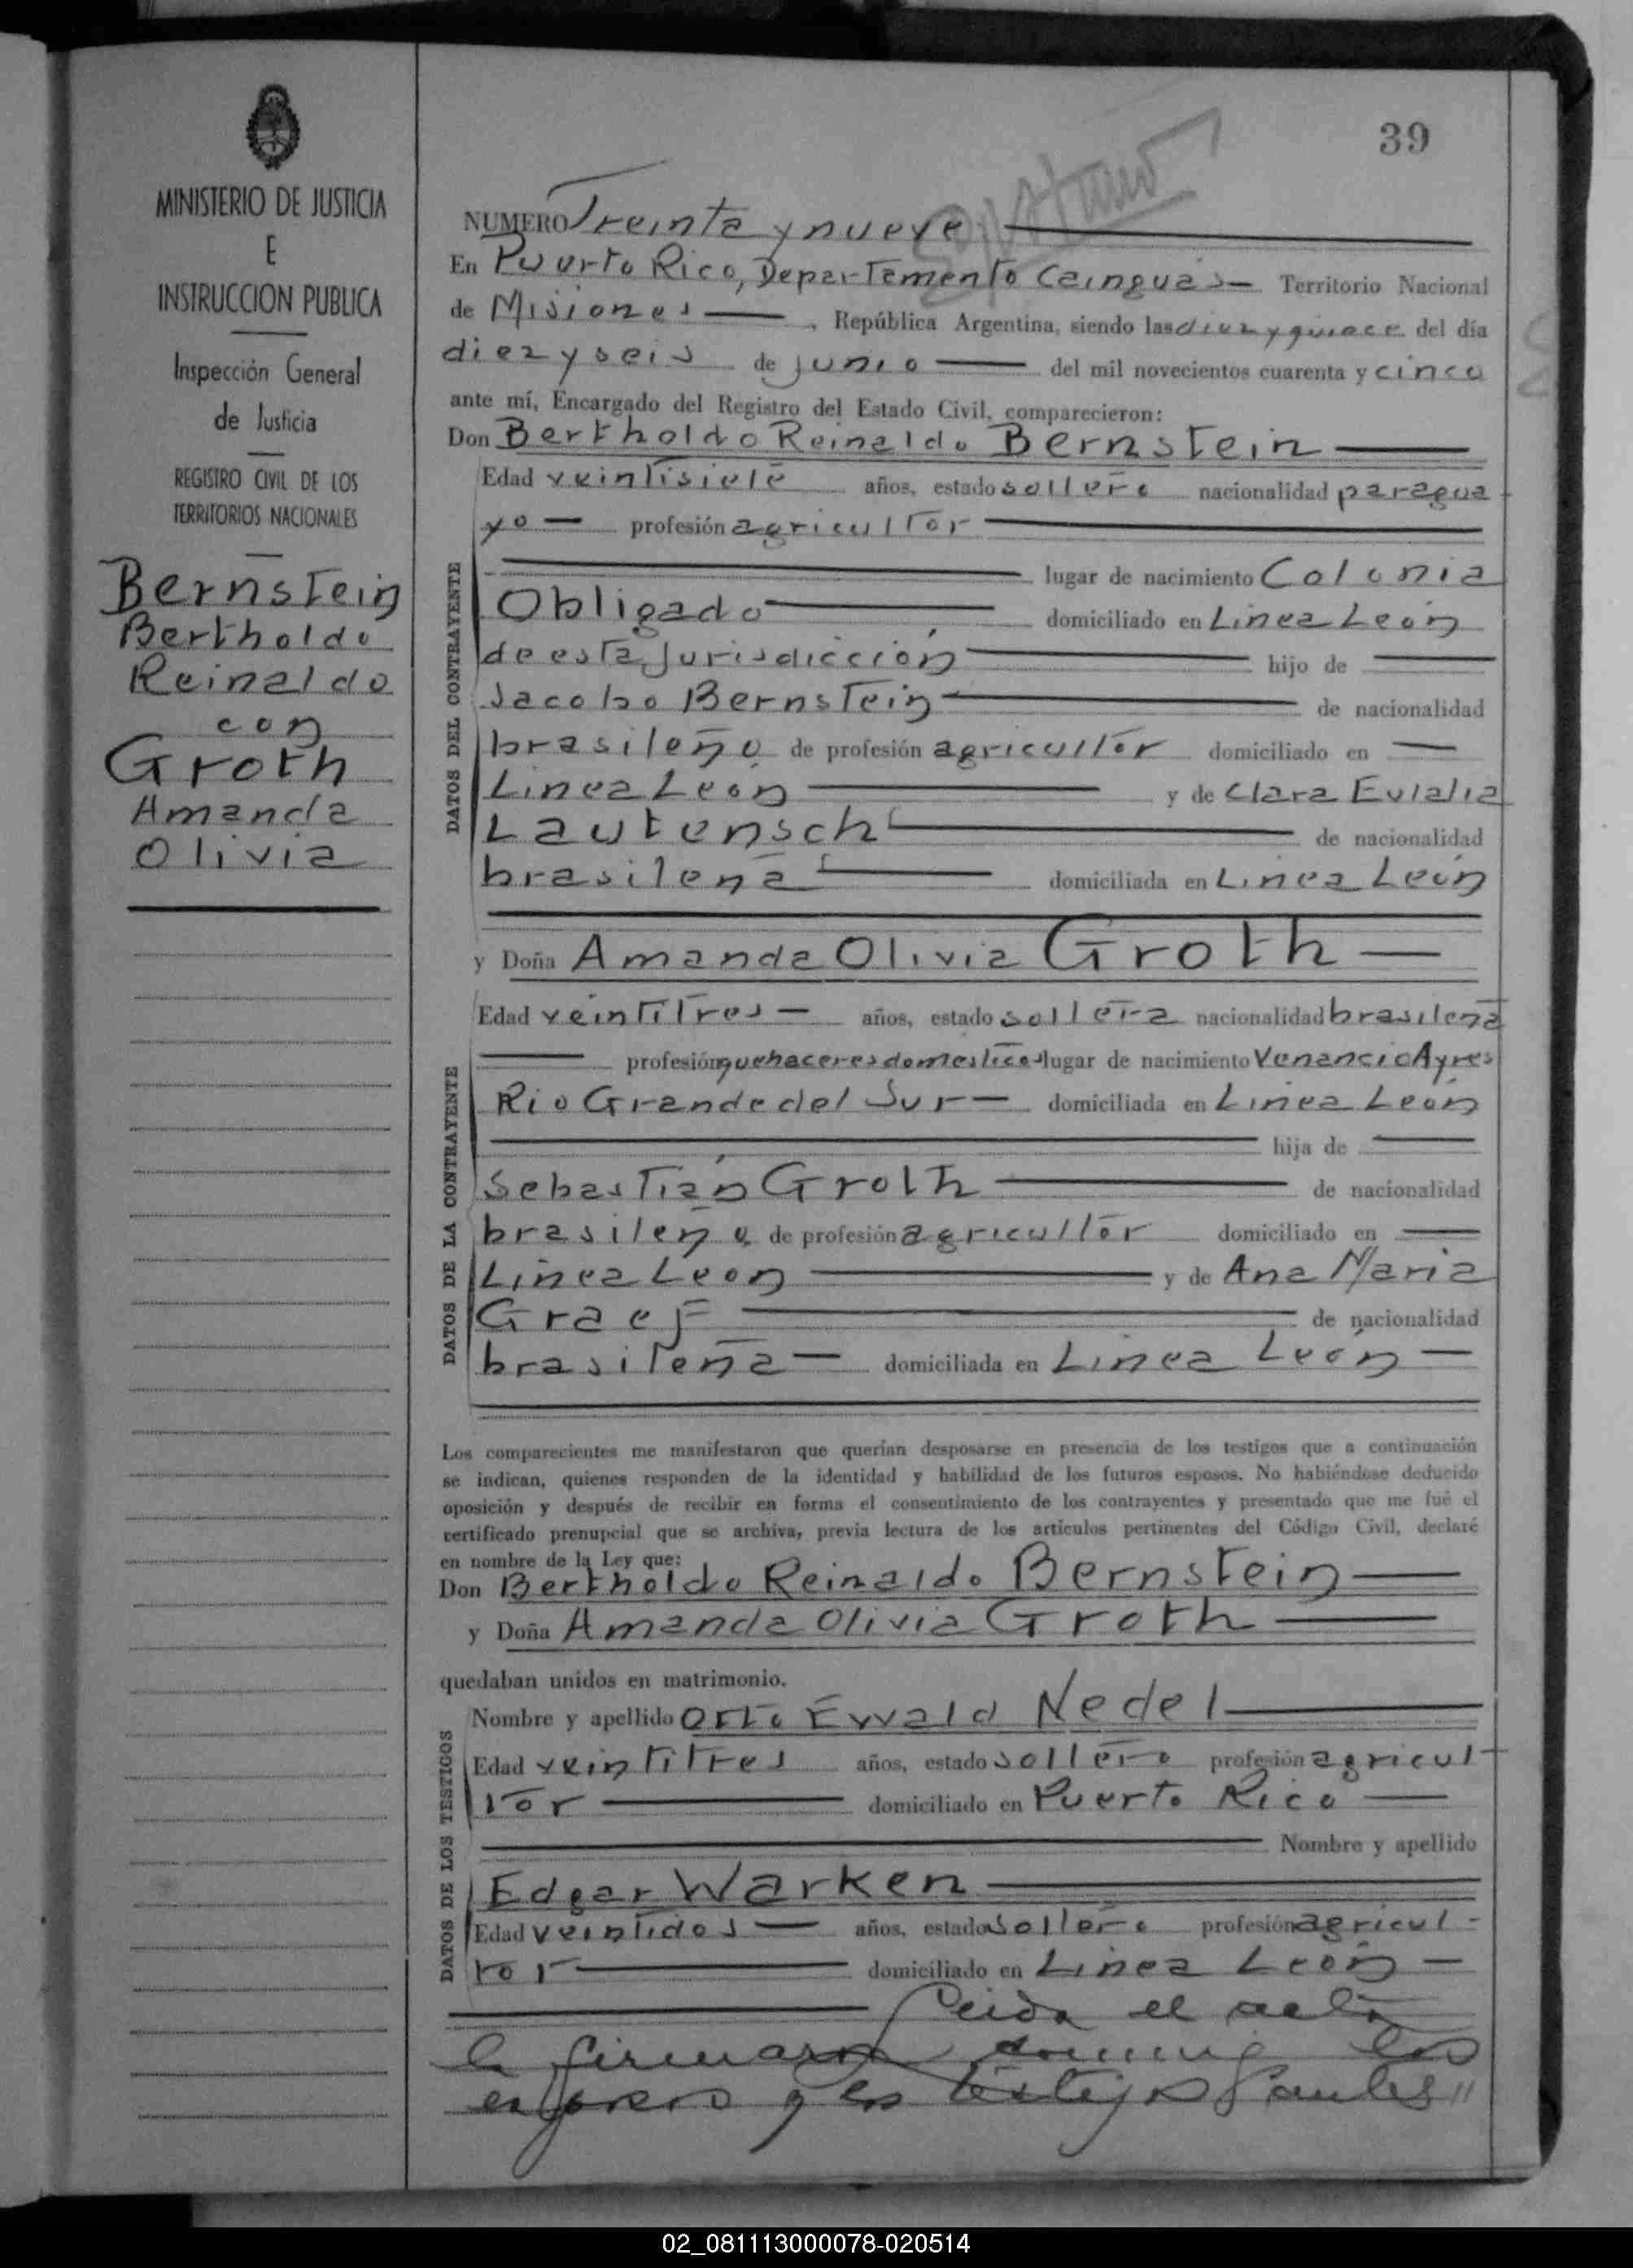 39
MINISTERIO DE JUSTICIA
E
INSTRUCCION PUBLICA
Inspección General
de Justicia
REGISTRO CIVIL DE LOS
TERRITORIOS NACIONALES
Bernstein
Bertholdo
Reinaldo
con
Groth
Amanda
Olivia
NUMERO Treinta y nueve
En Puerto Rico, Departamento Cainguás Territorio Nacional
de Misiones, República Argentina, siendo las diez y quince del día
diez y seis de junio del mil novecientos cuarenta y cinco
ante mí, Encargado del Registro del Estado Civil, comparecieron:
Don Bertholdo Reinaldo Bernstein
DATOS DEL CONTRAYENTE
Edad veintisiete años, estado soltero nacionalidad paragua
yo profesión agricultor
lugar de nacimiento Colonia
Obligado domiciliado en Linea León
de esta Jurisdicción hijo de
Jacobo Bernstein de nacionalidad
brasileño de profesión agricultor domiciliado en
Linea León y de Clara Eulalia
Lautensch de nacionalidad
brasileña domiciliada en Linea León
y Doña Amanda Olivia Groth
DATOS DE LA CONTRAYENTE
Edad veintitres años, estado soltera nacionalidad brasileña
profesión quehaceres domesticos lugar de nacimiento Venancio Ayres
Rio Grande del Sur domiciliada en Linea León
hija de
Sebastián Groth de nacionalidad
brasileño de profesión agricultor domiciliado en
Linea Leon y de Ana Maria
Graef de nacionalidad
brasileña domiciliada en Linea León
Los comparecientes me manifestaron que querían desposarse en presencia de los testigos que a continuación
se indican, quienes responden de la identidad y habilidad de los futuros esposos. No habiéndose deducido
oposición y después de recibir en forma el consentimiento de los contrayentes y presentado que me fué el
certificado prenupcial que se archiva, previa lectura de los artículos pertinentes del Código Civil, declaré
en nombre de la Ley que:
Don Bertholdo Reinaldo Bernstein
y Doña Amanda Olivia Groth
quedaban unidos en matrimonio.
DATOS DE LOS TESTIGOS
Nombre y apellido Otto Ewald Nedel
Edad veintitres años, estado soltero profesión agricul-
tor domiciliado en Puerto Rico
Nombre y apellido
Edgar Warken
Edad veintidos años, estado soltero profesión agricul-
tor domiciliado en Linea León
Leida el acta
la firmaron conmigo los
esposos y los testigos
02_081113000078-020514